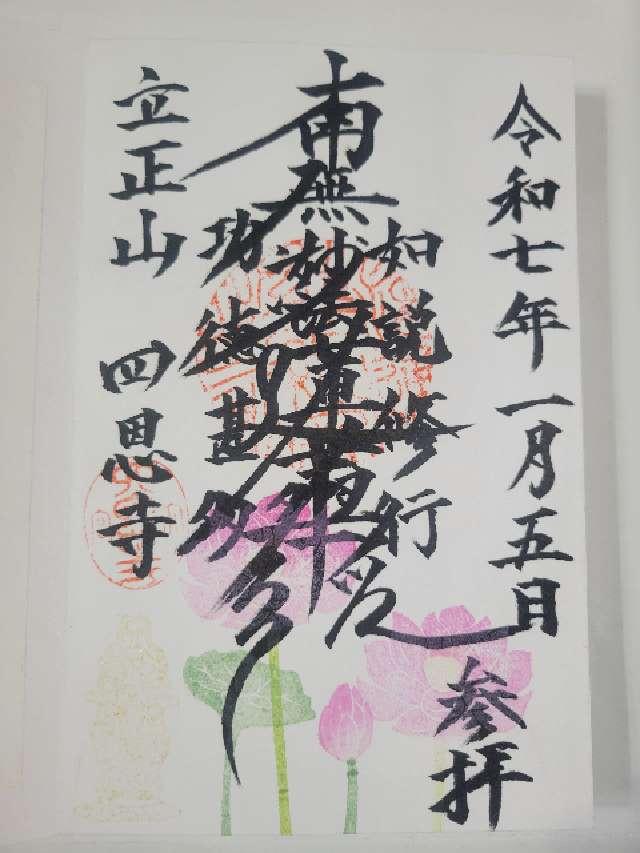 令和七年一月五日
参拝
如説修行
南無妙法蓮華経
功徳甚多
立正山
四恩寺